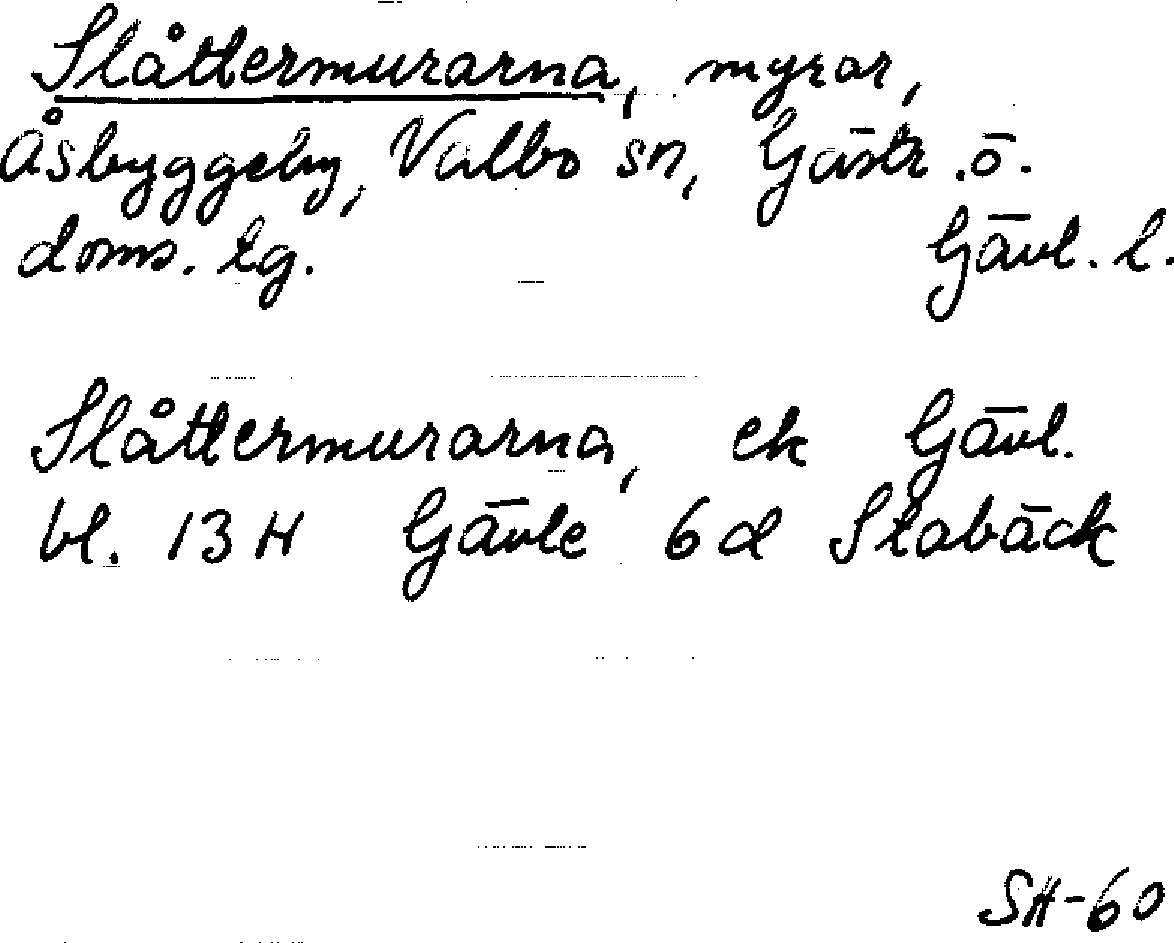 Slåttermurarna, myrar,
Åsbyggeby, Valbo sn, Gästr. ö.
doms. tg. Gävl. l.
Slåttermurarna, ek Gävl.
bl. 13 H Gävle 6d Stabäck
SH-60